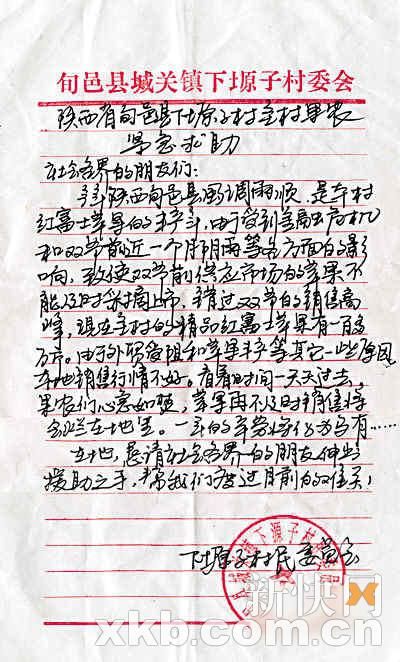 旬邑县城关镇下塬子村委会
陕西省旬邑县下塬子村全村果农
紧急求助
社会各界的朋友们：
今年陕西旬邑县风调雨顺，是本村
红富士苹果的丰年，由于受到金融危机
和双节前近一个月阴雨等各方面的影
响，致使双节前供应市场的苹果不
能及时采摘上市，错过双节的销售高
峰，现在全村的精品红富士苹果有一百多
万斤。由于外贸受阻和苹果丰产等其它一些原因
本地销售行情不好。看着时间一天天过去，
果农们心急如焚，苹果再不及时销售将
会烂在地里。一年的辛劳将化为乌有……
在此，恳请社会各界的朋友伸出
援助之手，帮我们度过目前的难关！
下塬子村民委员会
下源子村
新快网
xkb.com.cn